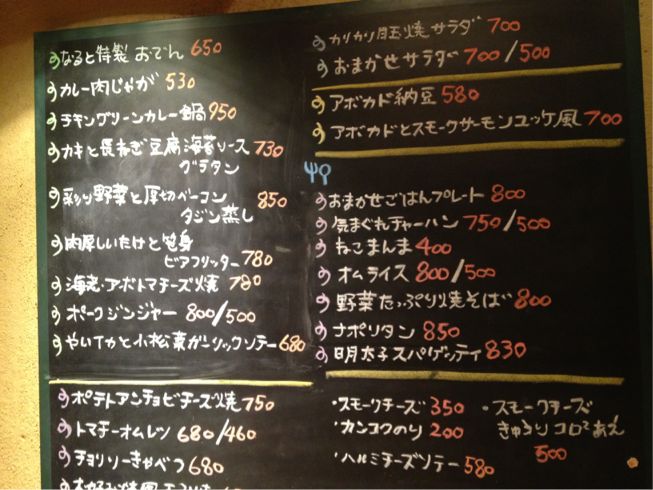 なると特製 おでん 650
カレー肉じゃが 530
チキングリーンカレー鍋 950
カキと長ねぎ豆腐海苔ソース 730
グラタン
彩り野菜と厚切ベーコン 850
タジン蒸し
肉厚しいたけと
ビアフリッター 780
海老・アボトマチーズ焼 780
ポークジンジャー 800/500
やりイカと小松菜ガーリックソテー 680
ポテトアンチョビチーズ焼 750
トマチーオムレツ 680/460
チョリソーきゃべつ 680
カリカリ目玉焼サラダ 700
おまかせサラダ 700/500
アボカド納豆 580
アボカドとスモークサーモンユッケ風 700
おまかせごはんプレート 800
気まぐれチャーハン 750/500
ねこまんま 400
オムライス 800/500
野菜たっぷり焼そば 800
ナポリタン 850
明太子スパゲッティ 830
・スモークチーズ 350
・カンコクのり 200
・ハルミチーズソテー 580
・スモークチーズ
きゅうり コロコロあえ
500